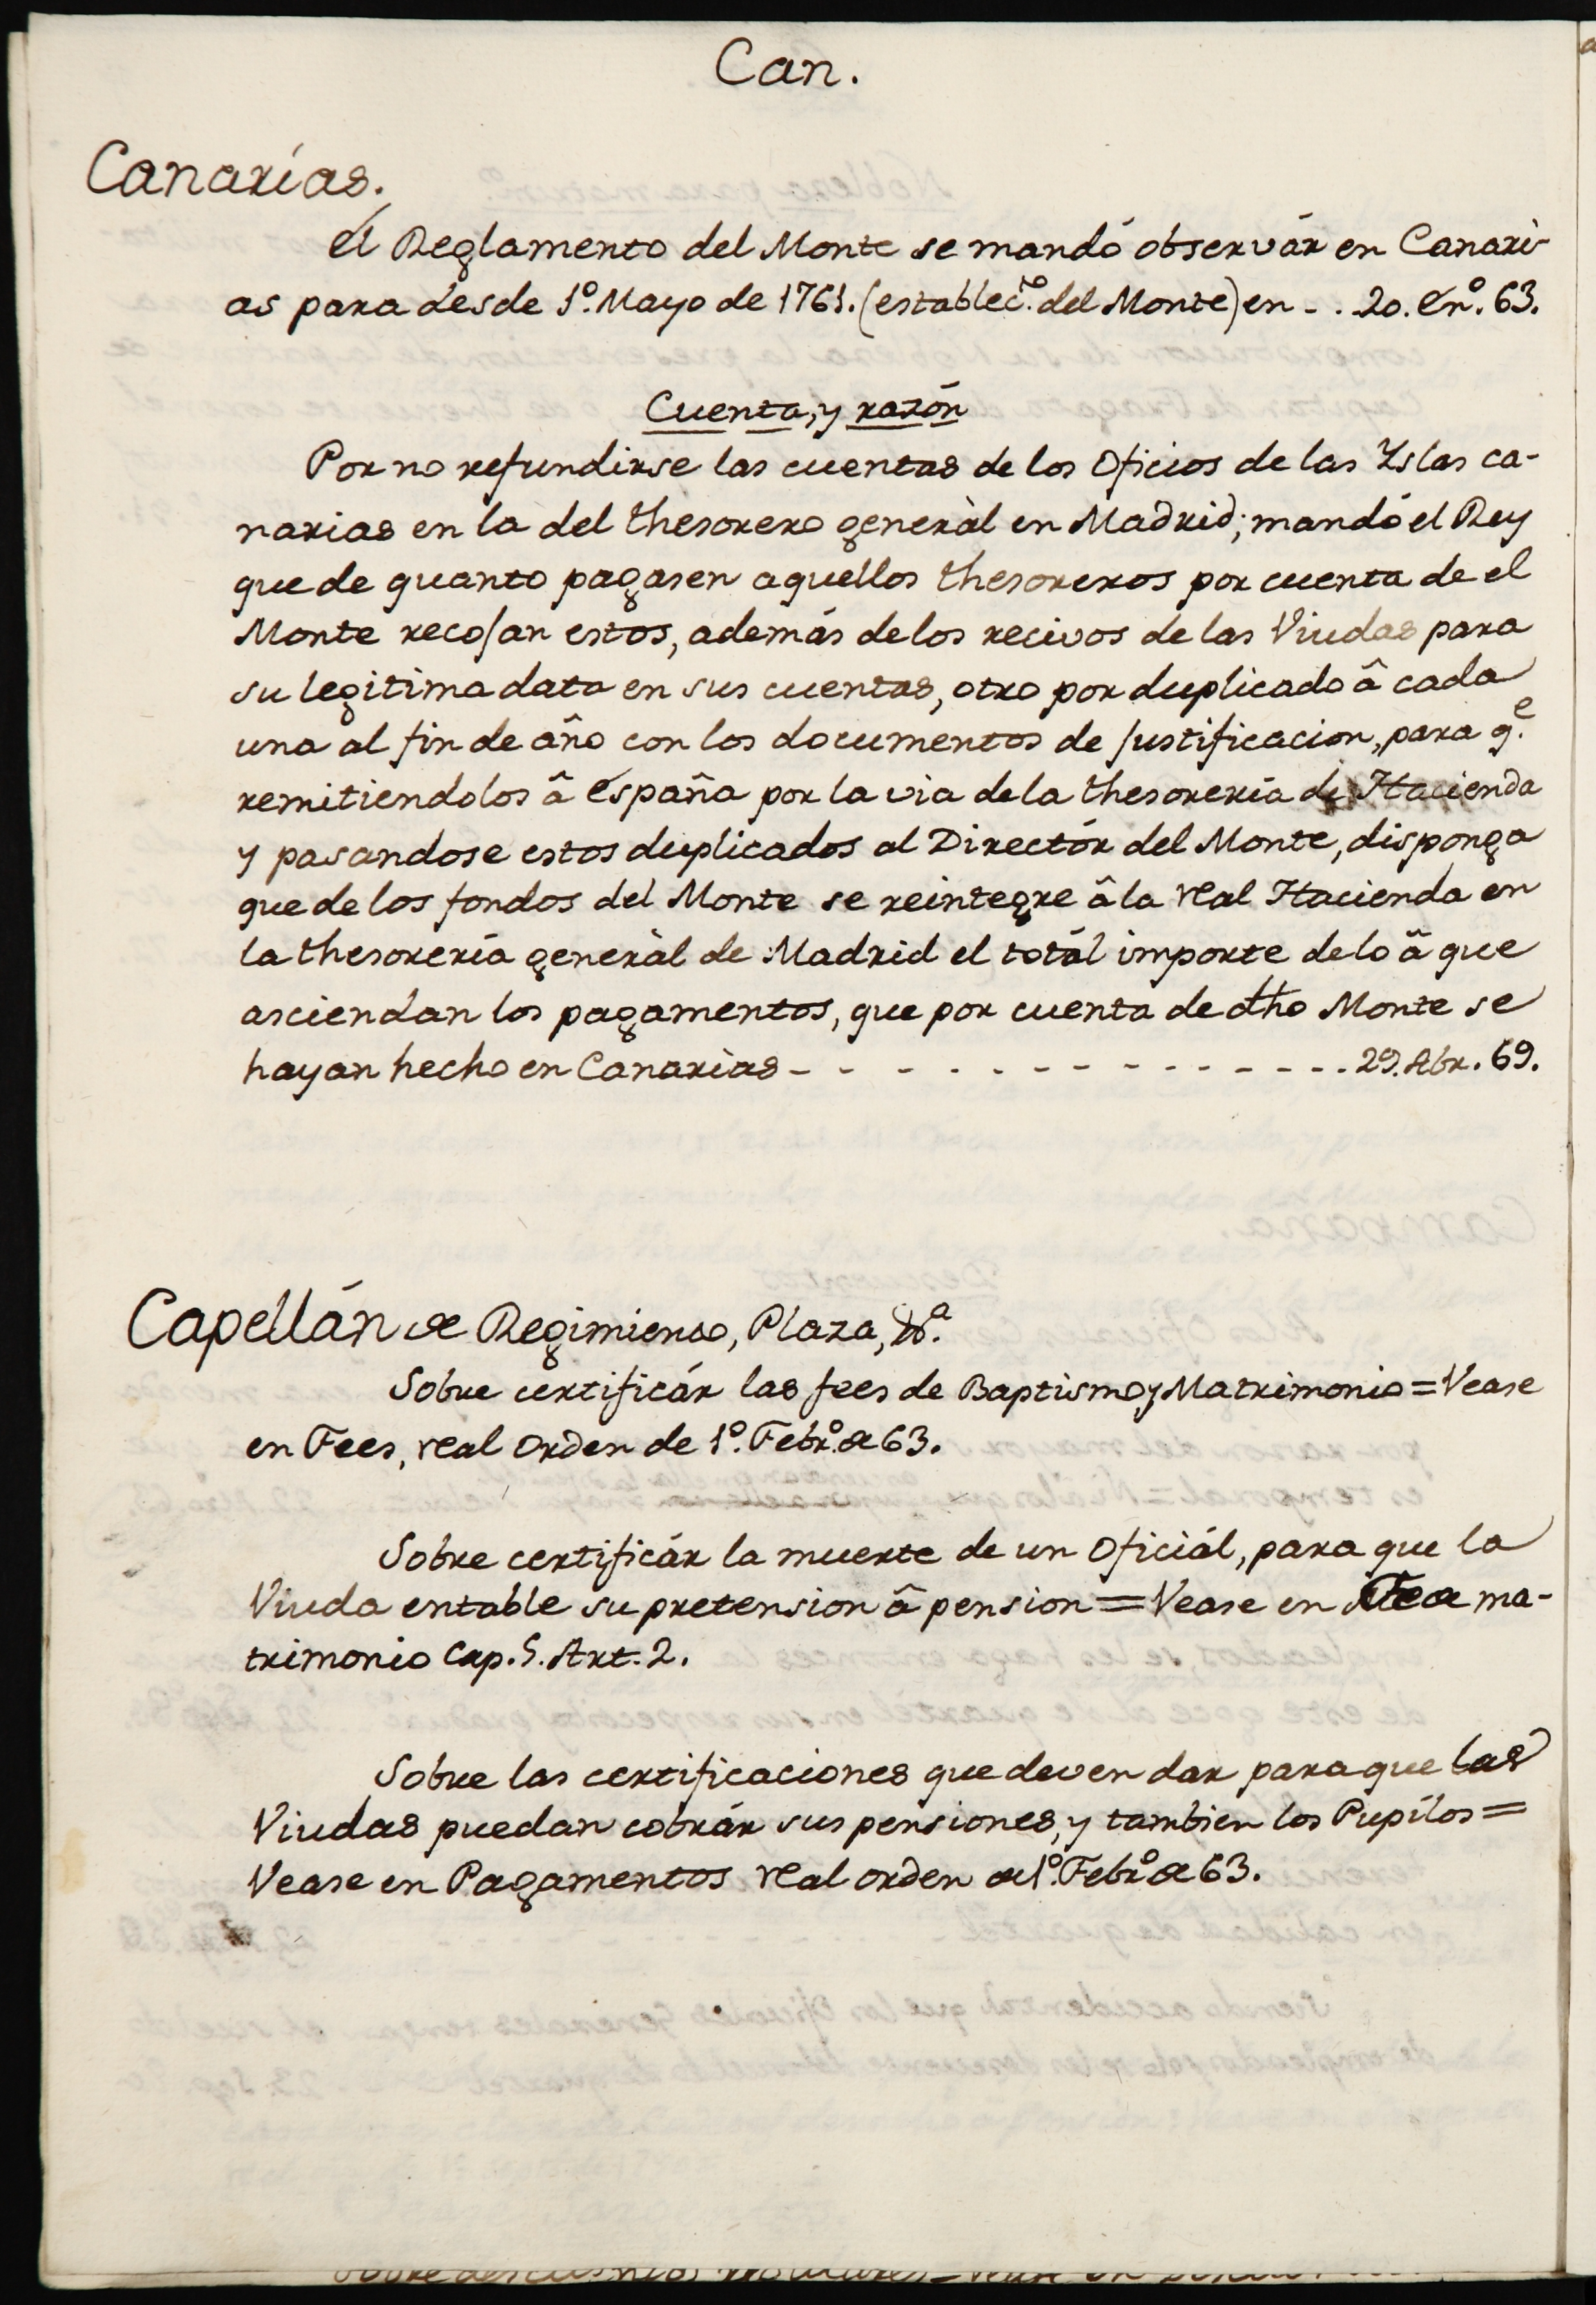 Can.
Canarias.
él Reglamento del Monte se mandó observár en Canari-
as para desde 1º. Mayo de 1761. (establecto. del Monte) en - . . 20. Enº. 63.
Cuenta, y razón
Por no refundirse las cuentas de los Oficios de las Yslas ca-
narias en la del thesorero generàl en Madrid; mandó el Rey
que de quanto pagasen aquellos thesoreros por cuenta de el
Monte recojan estos, además de los recivos de las Viudas para
su legitima data en sus cuentas, otro por duplicado â cada
una al fin de año con los documentos de justificacion, para qe.
remitiendolos â España por la via de la thesorería de Hacienda
y pasandose estos duplicados al Directór del Monte, disponga
que de los fondos del Monte se reintegre â la real Hacienda en
la thesorería generàl de Madrid el totál importe de lo â que
asciendan los pagamentos, que por cuenta de dho Monte se
hayan hecho en Canarias - - - - - - - - - - - - - 29. Abr. 69.
Capellán de Regimiento, Plaza, &a.
Sobre certificár las fees de Baptismo, y Matrimonio = Vease
en Fees, real Orden de 1º. Febrº. de 63.
Sobre certificár la muerte de un Oficiál, para que la
Viuda entable su pretension â pension = Vease en Fe de ma-
trimonio Cap. 5. Art. 2.
Sobre las certificaciones que deven dar para que las
Viudas puedan cobrár sus pensiones, y tambien los Pupilos =
Vease en Pagamentos real orden de 1º. Febrº. de 63.